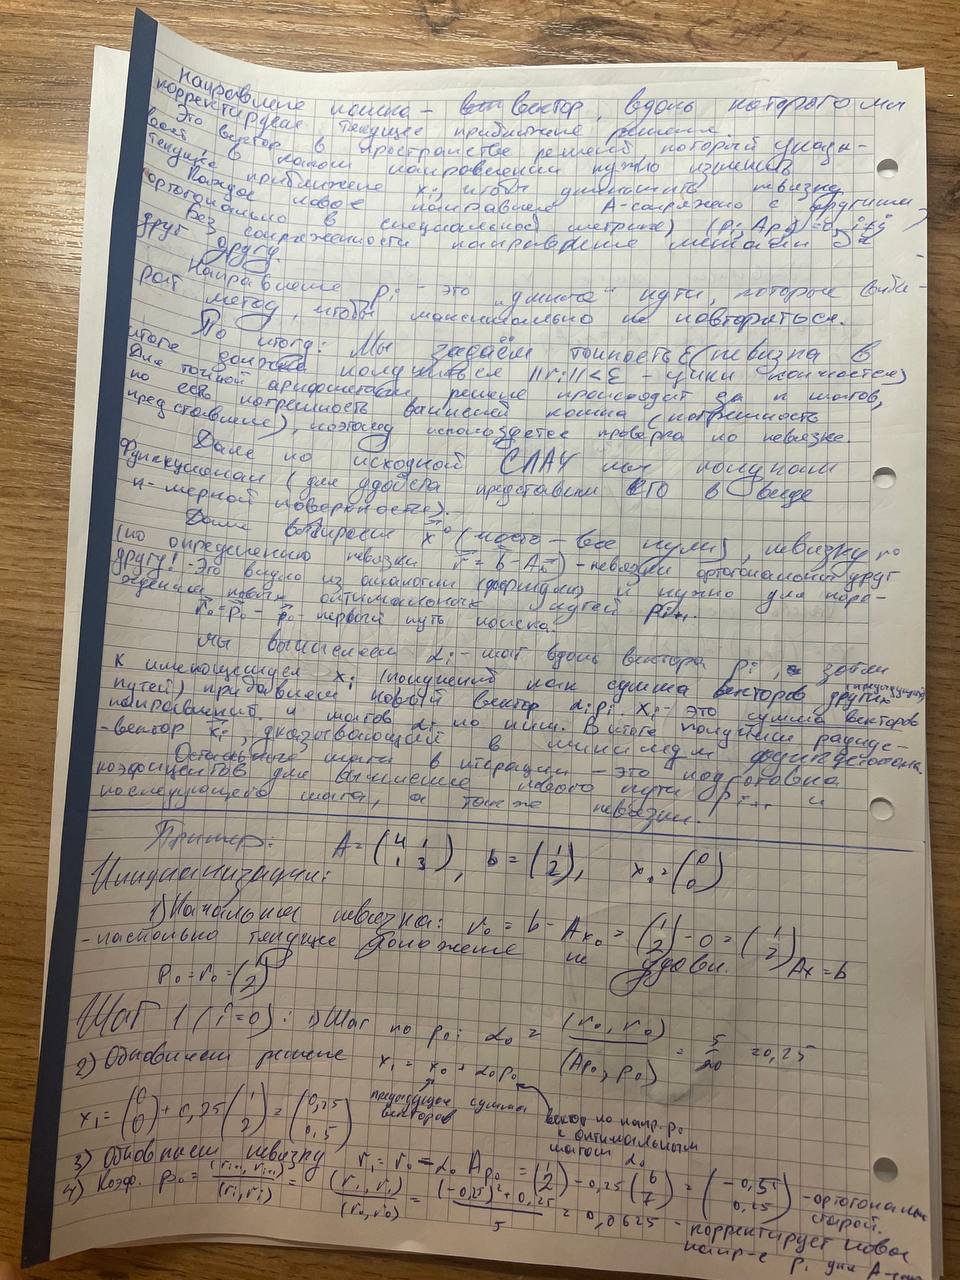 Направление поиска – вектор, вдоль которого мы
корректируем текущее приближение решения.
Это вектор в пространстве решений который указы-
вает, в каком направлении нужно изменить
текущее приближение xi чтобы уменьшить невязку
Каждое новое направлен A-сопряжено с другими
(ортогонально в специальной метрике) (pi, Apj)=0, i≠j
Без сопряженности направление мешали б
друг другу.
Направление pi – это "умные" пути, которые выби-
рает метод, чтобы максимально не повторяться.
По итогу: Мы задаём точность ε (невязка в
итоге должна получиться ||ri||<ε – цикл кончается)
Для точной арифметики решение происходит за n шагов,
но есть погрешность (погрешность
представление), поэтому используется проверка по невязке
Далее по исходной СЛАУ мы получаем
Функционал (для удобства представим его в виде
n-мерной поверхности).
Далее выбираем x⁰ (часто – все нули), невязку r⁰
(по определению невязки r = b - Ax) – невязки ортогональны друг
другу! - Это видно из аналогии (формулы) и нужно для
новых оптимальных путей pi+1.
r0=p0 – p0 – первый путь поиска.
Мы вычисляем αi – шаг вдоль вектора pi, затем
к имеющемуся xi (полученный как сумма векторов других предыдущих
путей) прибавляем новый вектор αipi xi – это сумма векторов
направлений и шагов αi по ним. В итоге получим радиус-
-вектор xi, указывающий в минимум
Остальные шаги в итерации – это подготовка
коэфициентов для вычисление нового пути pi+1 и
последующего шага, а также невязки.
Пример: A = (4 1 1 3), b = (1 2), x0 = (0 0)
Инициализация:
1) Начальная невязка: r0 = b – Ax0 = (1 2) – 0 = (1 2)
- насколько текущее положение не удовл. Ax = b
p0 = r0 = (1 2)
Шаг 1 (i=0): 1) Шаг по p0: α0 = (r0, r0) / (Ap0, p0) = 5/20 = 0,25
2) Обновляем решение x1 = x0 + α0p0
предыдущее сумма векторов
вектор по напр. p0 с оптимальным шагом α0
x1 = (0 0) + 0,25 (1 2) = (0,25 0,5)
3) Обновляем невязку r1 = r0 – α0 Ap0 = (1 2) – 0,25 (6 7) = (-0,5 0,25) – ортогональн старой.
4) Коэф. β0 = (ri+1, ri+1) / (ri, ri) = (r1, r1) / (r0, r0) = (-0,25)² + 0,25 / 5 = 0,0625 – корректирует новое
напр-е p1 для